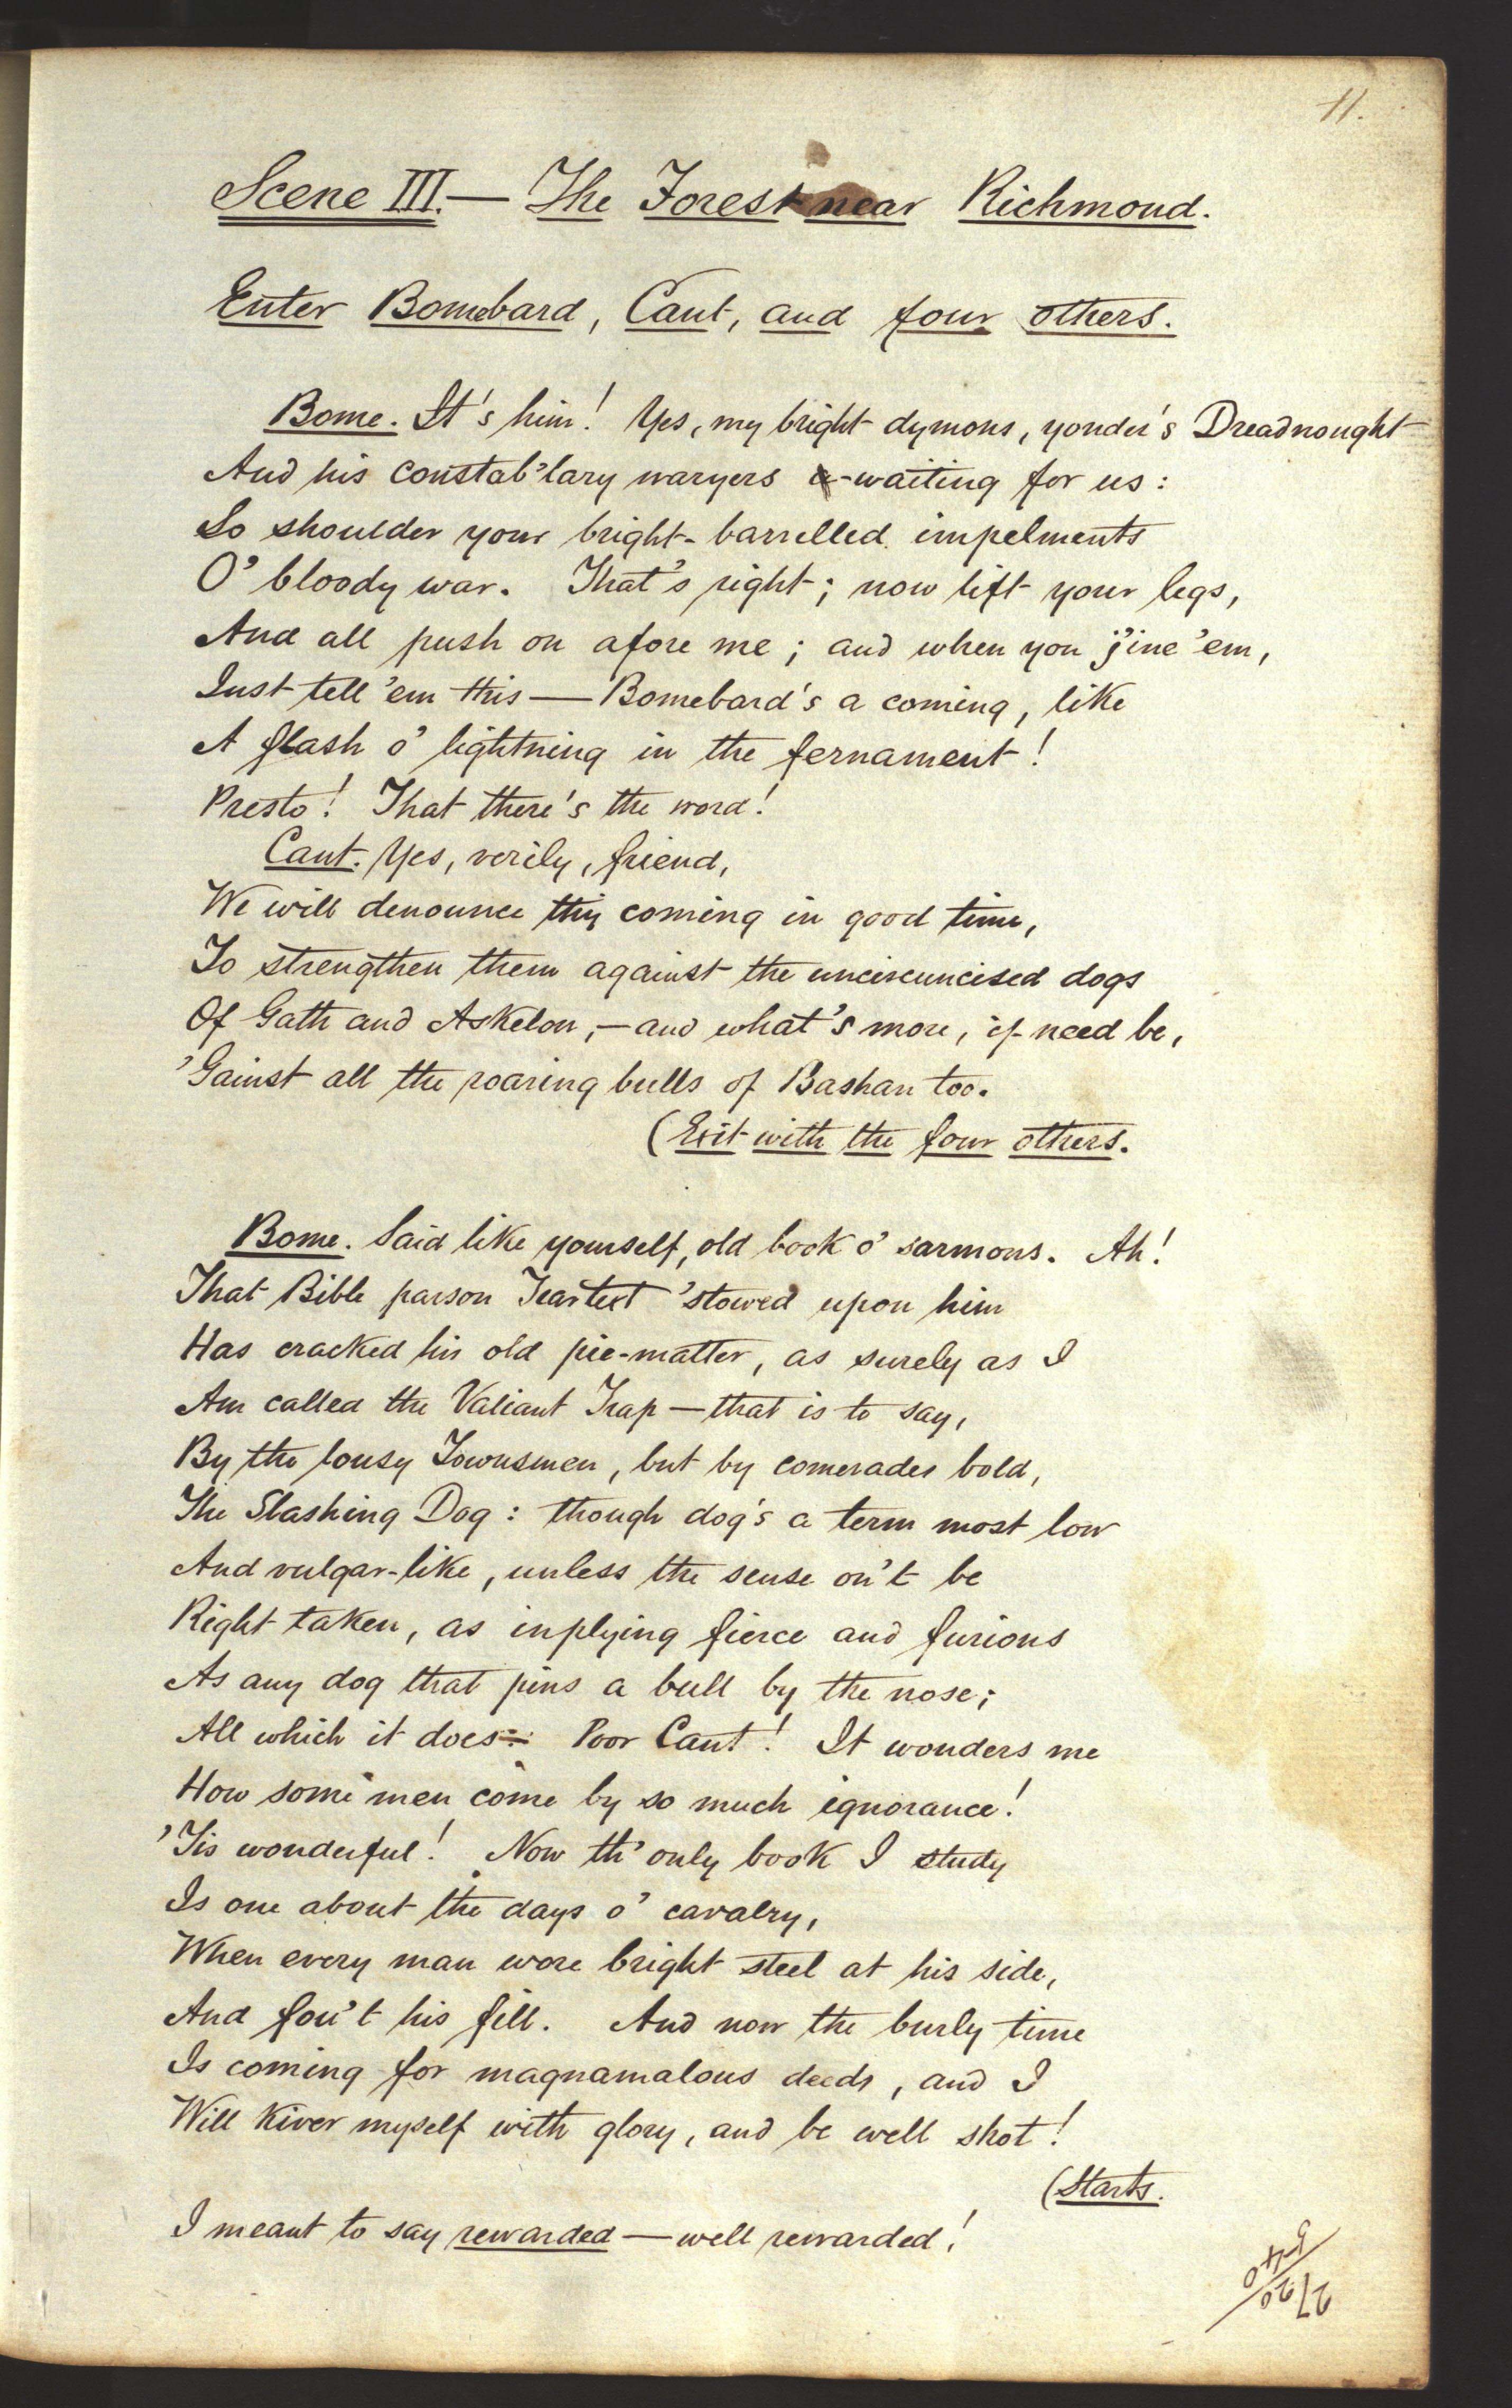 11.
Scene III.— The Forest near Richmond.
Enter Bomebard, Cant, and four others.
Bome. It's him! Yes, my bright dymons, yonder's Dreadnought
And his constab'lary waryers a-waiting for us:
So shoulder your bright-barrelled impelments
O' bloody war. That's right; now lift your legs,
And all push on afore me; and when you j'ine 'em,
Just tell 'em this — Bomebard's a coming, like
A flash o' lightning in the fernament!
Presto! That there's the word!
Cant. Yes, verily, friend,
We will denounce thy coming in good time,
To strengthen them against the uncircumcised dogs
Of Gath and Askelon,— and what's more, if need be,
'Gainst all the roaring bulls of Bashan too.
(Exit with the four others.
Bome. Said like yourself, old book o' sarmons. Ah!
That Bible parson Teartext 'stowed upon him
Has cracked his old pie-matter, as surely as I
Am called the Valiant Trap — that is to say,
By the lousy Townsmen, but by comerades bold,
The Slashing Dog: though dog's a term most low
And vulgar-like, unless the sense on't be
Right taken, as inplying fierce and furious
As any dog that pins a bull by the nose;
All which it does. Poor Cant! It wonders me
How some men come by so much ignorance!
'Tis wonderful! Now th' only book I study
Is one about the days o' cavalry,
When every man wore bright steel at his side,
And fou't his fill. And now the burly time
Is coming for magnamalous deeds, and I
Will kiver myself with glory, and be well shot!
(Starts.
I meant to say rewarded — well rewarded!
540
2720